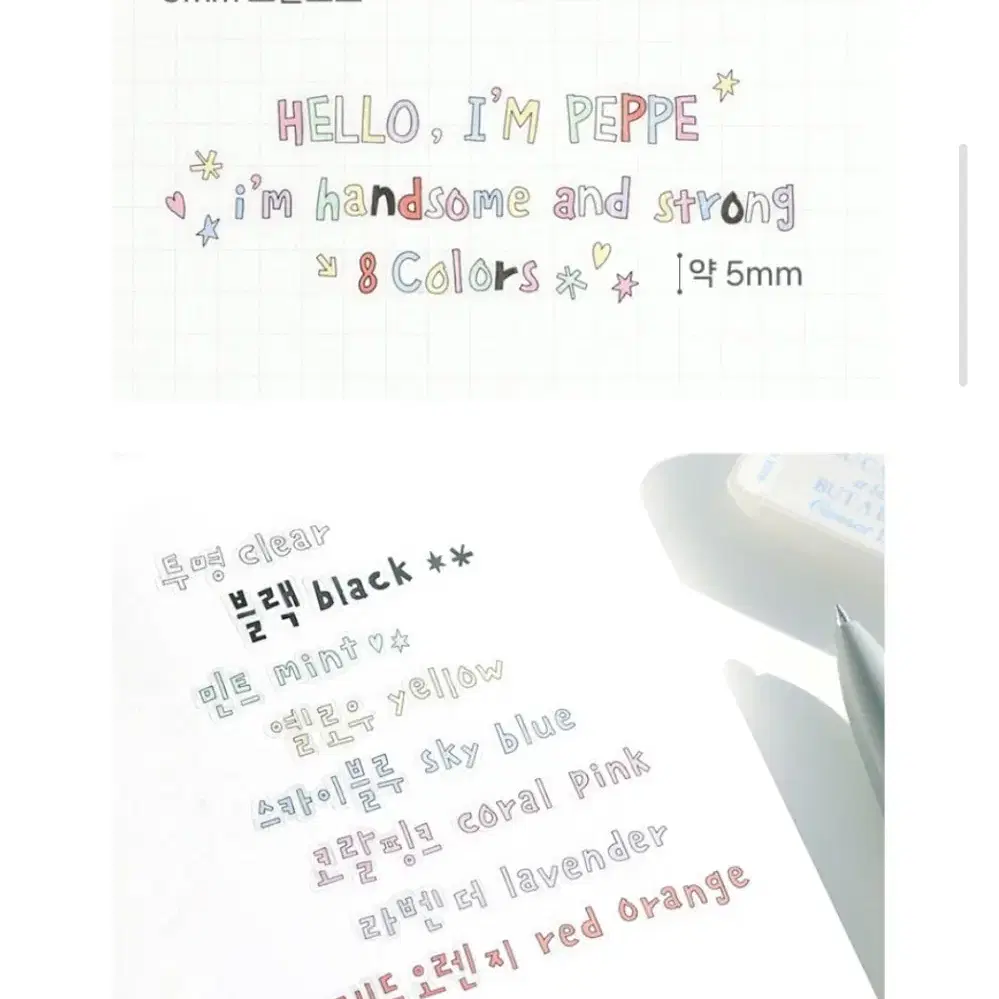 HELLO, I'M PEPPE
i'm handsome and strong
8 Colors
약 5mm
투명 clear
블랙 black
민트 mint
옐로우 yellow
스카이블루 sky blue
코랄핑크 coral pink
라벤더 lavender
오렌지 red orange
BUT A